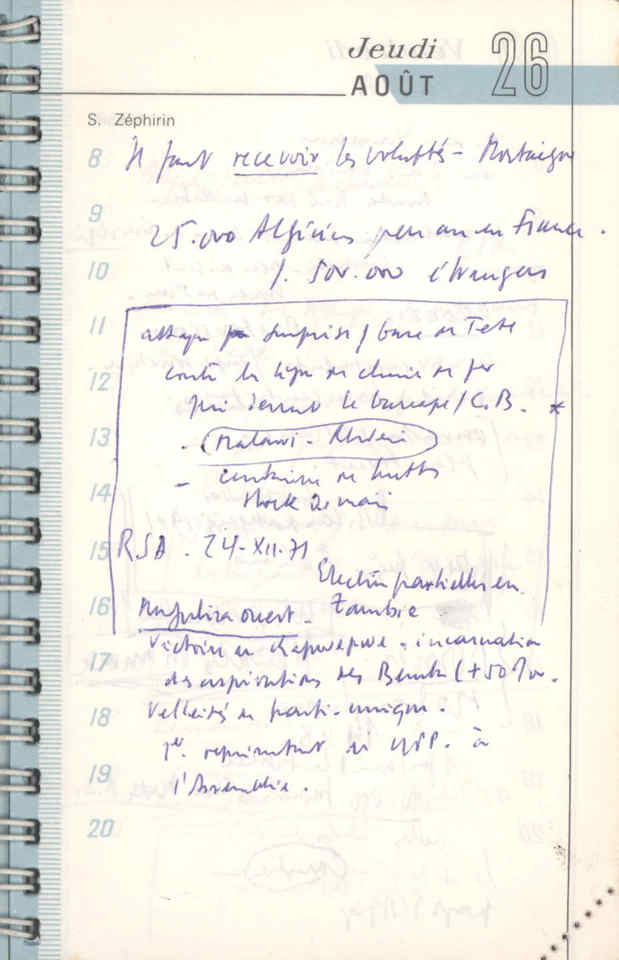 Jeudi 26
AOÛT
S. Zéphirin
8 Il faut recevoir les voluptés - Montaigne
9
25.000 Algériens par an en France.
10 /. 500.000 étrangers
11 attaque par surprise / base de Tete
contre la ligne de chemin de fer
12
qui dessert le barrage / C.B. *
13 . Malawi - Rhodésie
- centaine de
14 stock
15 RSA . 24-XII-71
Election partielle en
16 Mufulira ouest - Zambie
Victoire de Kapwepwe . incarnation
17
des aspirations des Bemba (+50%.
18 Velléités de parti unique.
1er représentant de UPP. à
19 l'Assemblée.
20